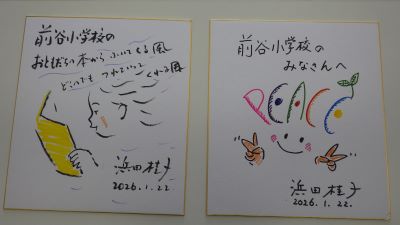 前谷小学校の
おともだち 本から ふいてくる風
どこへでも つれていって
くれる風
浜田桂子
2026.1.22.
前谷小学校の
みなさんへ
PEACE
浜田桂子
2026.1.22.